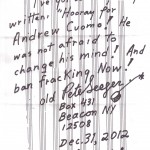 written: "Hooray for
Andrew Cuomo! He
was not afraid to
change his mind! And
ban fracking Now!
old Pete Seeger
Box 431
Beacon NY
12508
Dec. 31, 2012